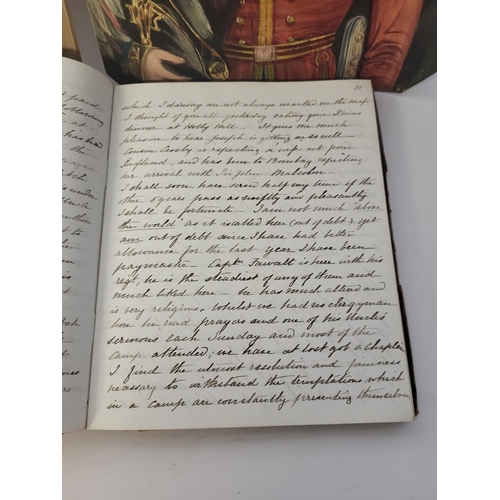 31
which I daresay are not always marked on the map
I thought of you all yesterday eating your Xmas
dinner at Holly Hill. It gives me much
pleasure to hear Joseph is getting on so well
Cousin Crosby is expecting a capt from
England, and has been to Bombay expecting
an arrival with Sir John Malcolm.
I shall soon have served half my time if the
other 6 years pass as swiftly and pleasantly
I shall be fortunate. I am not much "above
the world" as it is called here (out of debt) & yet
am out of debt since I have had better
allowance for the last year I have been
paymaster. Captn Fawcett is here with his
regt, he is the steadiest of any of them and
much liked here. he has much altered and
is very religious. Whilst we had no clergyman
here he read prayers and one of his Uncle's
sermons each Sunday and most of the
camp attended, we have at last got a Chaplain
I find the utmost resolution and firmness
necessary to withstand the temptations which
in a camp are constantly presenting themselves